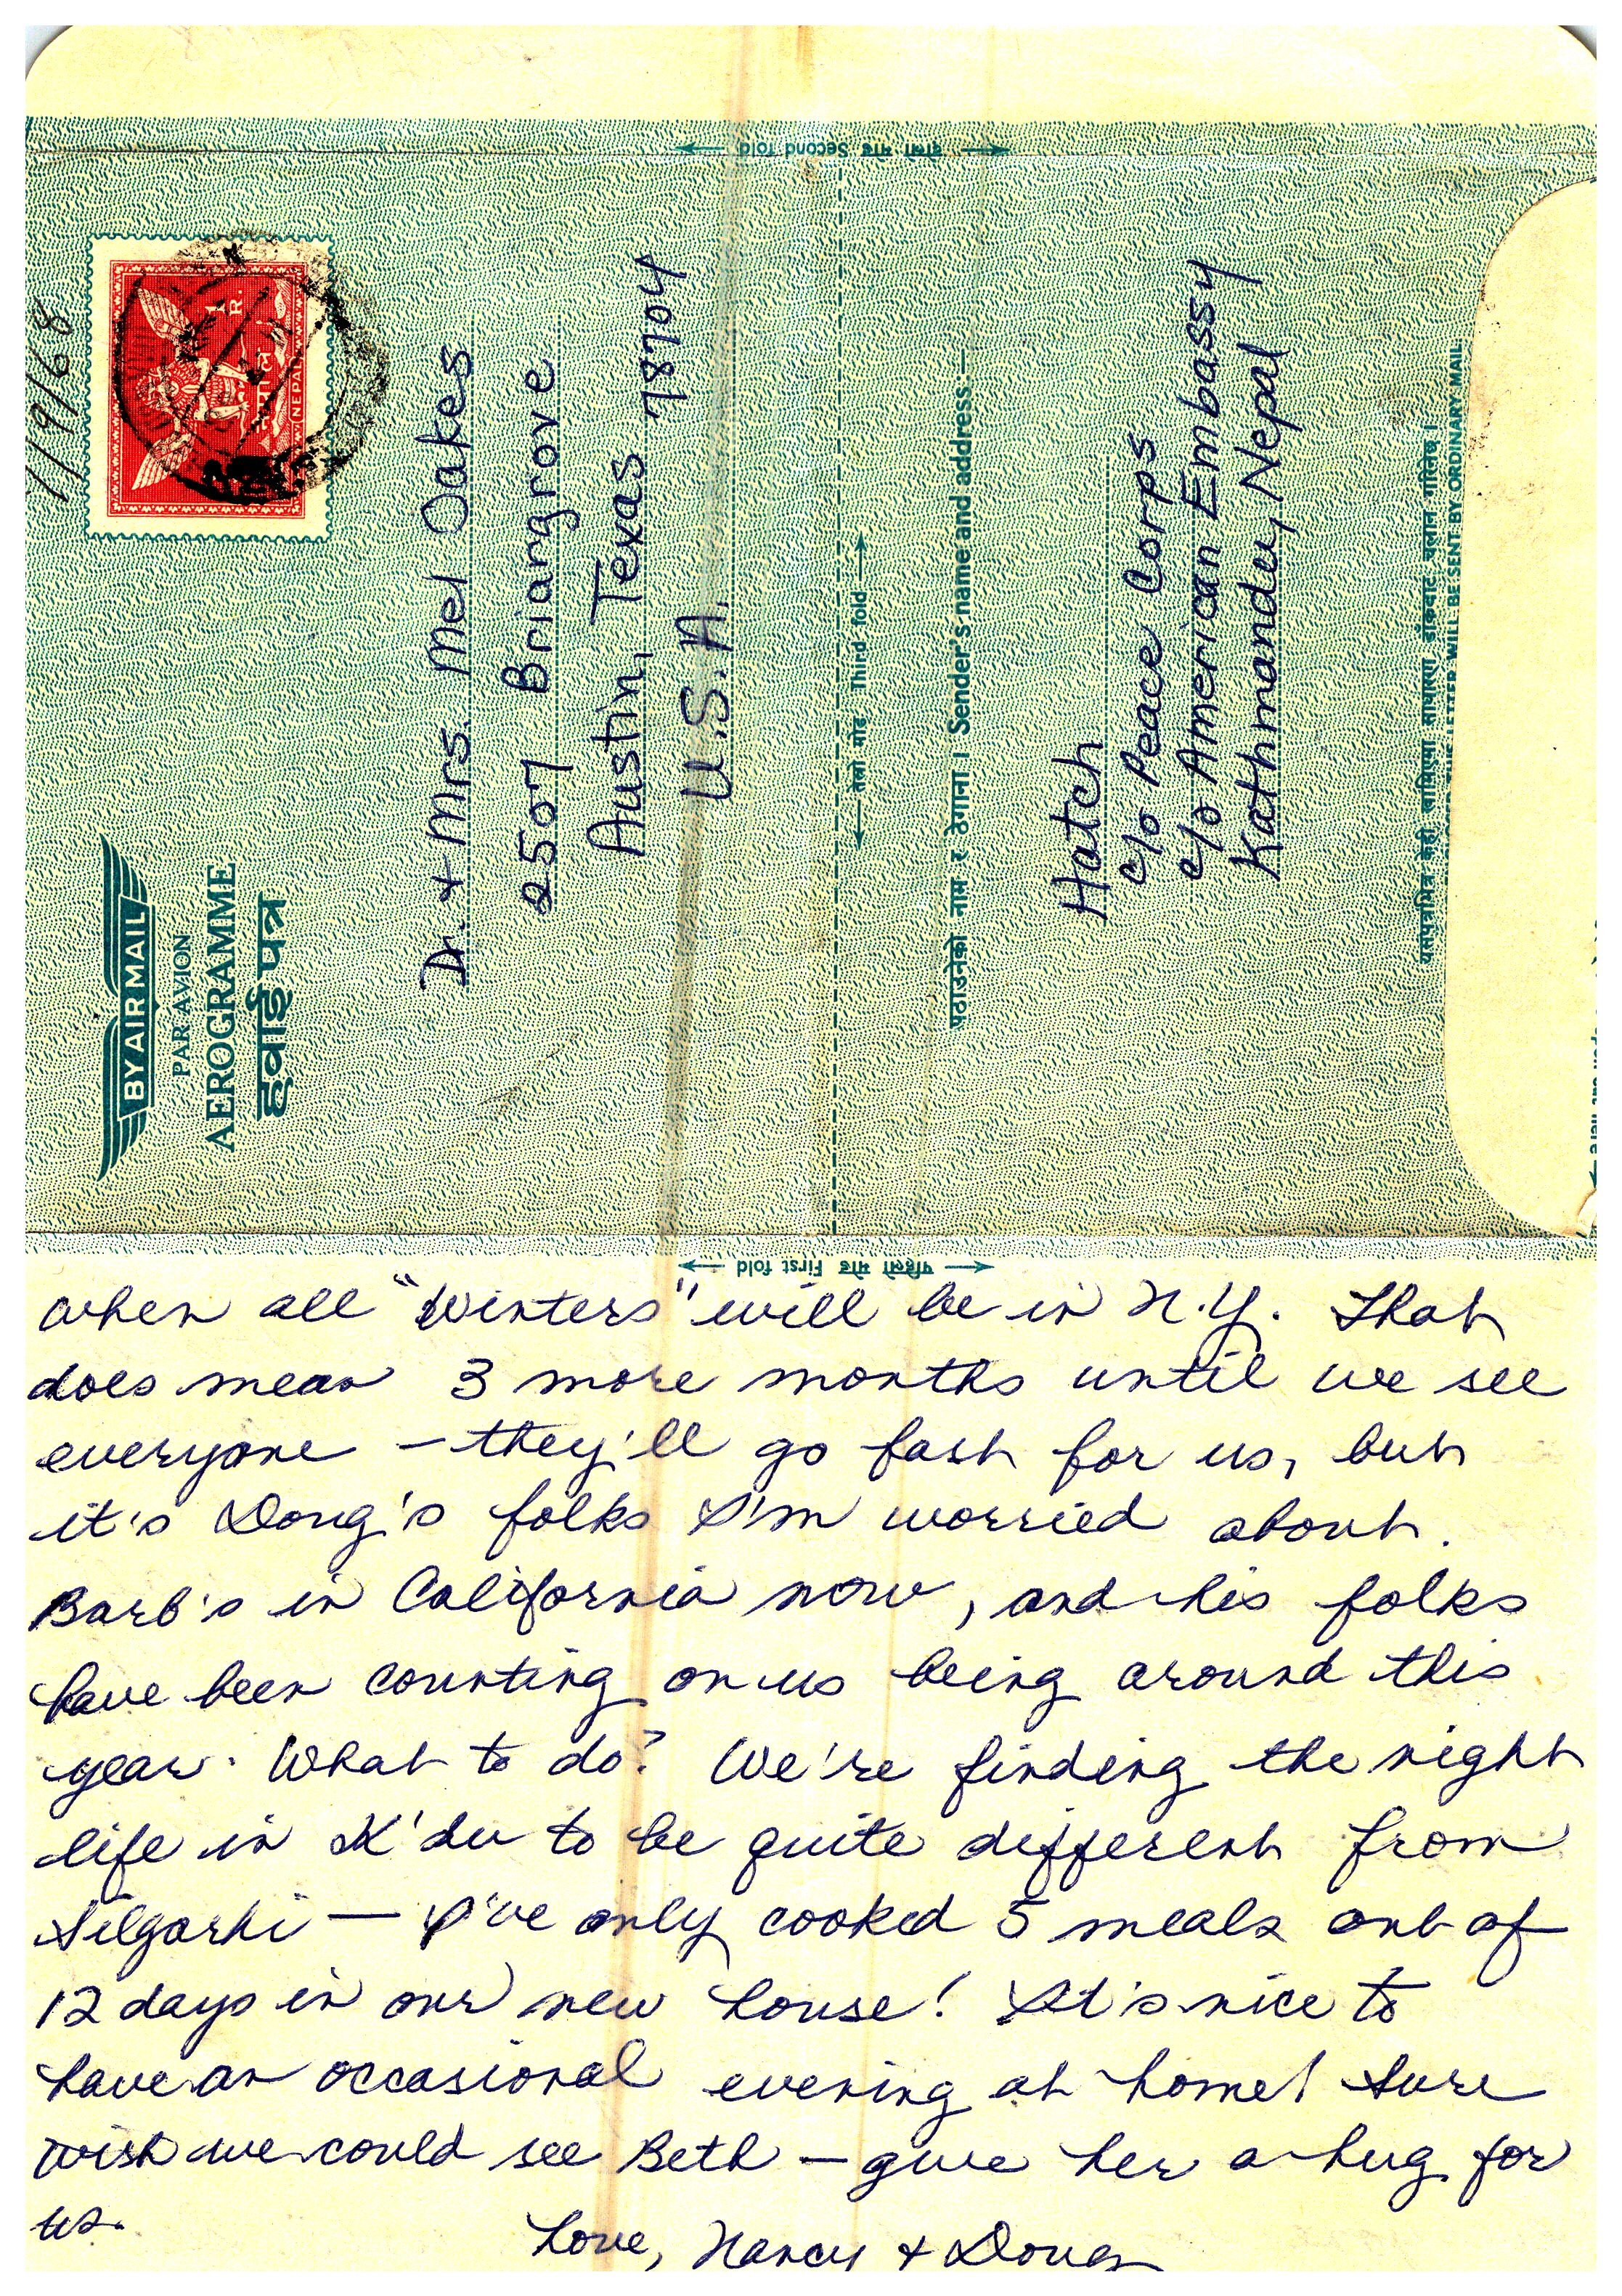 7/9/68
BY AIR MAIL
PAR AVION
AEROGRAMME
हवाई पत्र
1 R.
NEPAL
Dr. + Mrs. Mel Oakes
2507 Briargrove
Austin, Texas 78704
U.S.A.
दोस्रो मोड Second fold
तेस्रो मोड Third fold
पठाउनेको नाम र ठेगाना । Sender's name and address.—
Hatch
c/o Peace Corps
c/o American Embassy
Kathmandu, Nepal
यसपत्रभित्र केही राखिएमा साधारण डाँकबाट चलान गरिनेछ ।
LETTER WILL BE SENT BY ORDINARY MAIL
पहिलो मोड First fold
when all "Winters" will be in N.Y. That
does mean 3 more months until we see
everyone – they'll go fast for us, but
it's Doug's folks I'm worried about.
Barb's in California now, and his folks
have been counting on us being around this
year. What to do? We're finding the night
life in K'du to be quite different from
Silgarhi — I've only cooked 5 meals out of
12 days in our new house! It's nice to
have an occasional evening at home! Sure
wish we could see Beth – give her a hug for
us.
Love, Nancy + Doug